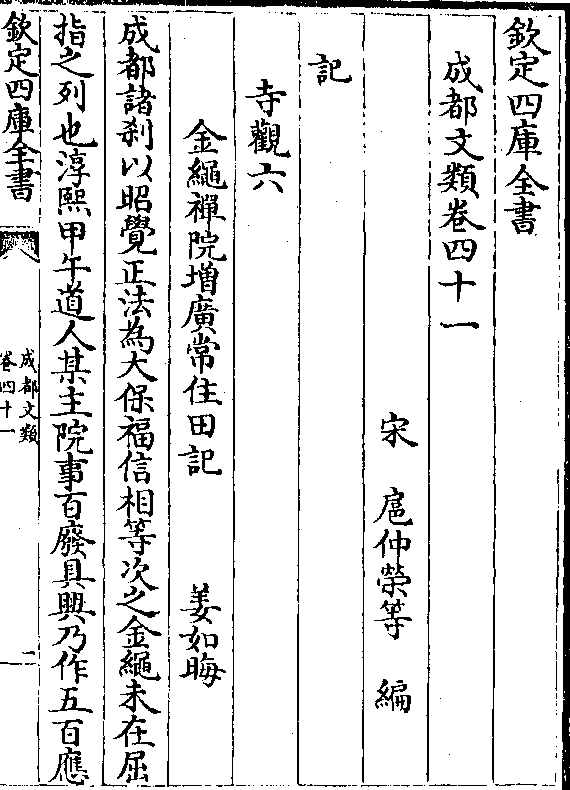 欽定四庫全書
成都文類卷四十一
宋 扈仲榮等 編
記
寺觀六
金繩禪院增廣常住田記 姜如晦
成都諸刹以昭覺正法為大保福信相等次之金繩未在屈
指之列也淳熙甲午道人某主院事百廢具興乃作五百應
欽定四庫全書
成都文類
卷四十一
一